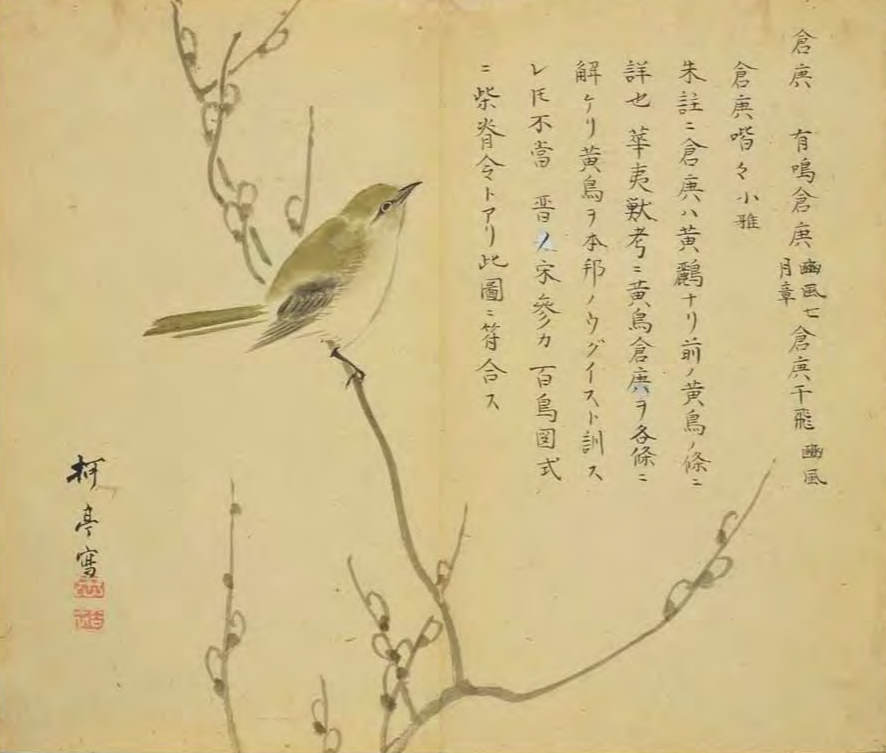 倉庚　有鳴倉庚　豳風七月章　倉庚于飛　豳風
倉庚喈々　小雅
朱註ニ倉庚ハ黄鸝ナリ前ノ黄鳥ノ條ニ
詳也　華夷獣考ニ黄鳥倉庚ヲ各條ニ
解ケリ黄鳥ヲ本邦ノウグイスト訓ス
レ𪜈不當　晋ノ宋參カ百鳥図式
ニ柴脊令トアリ此圖ニ符合ス
柯亭寫